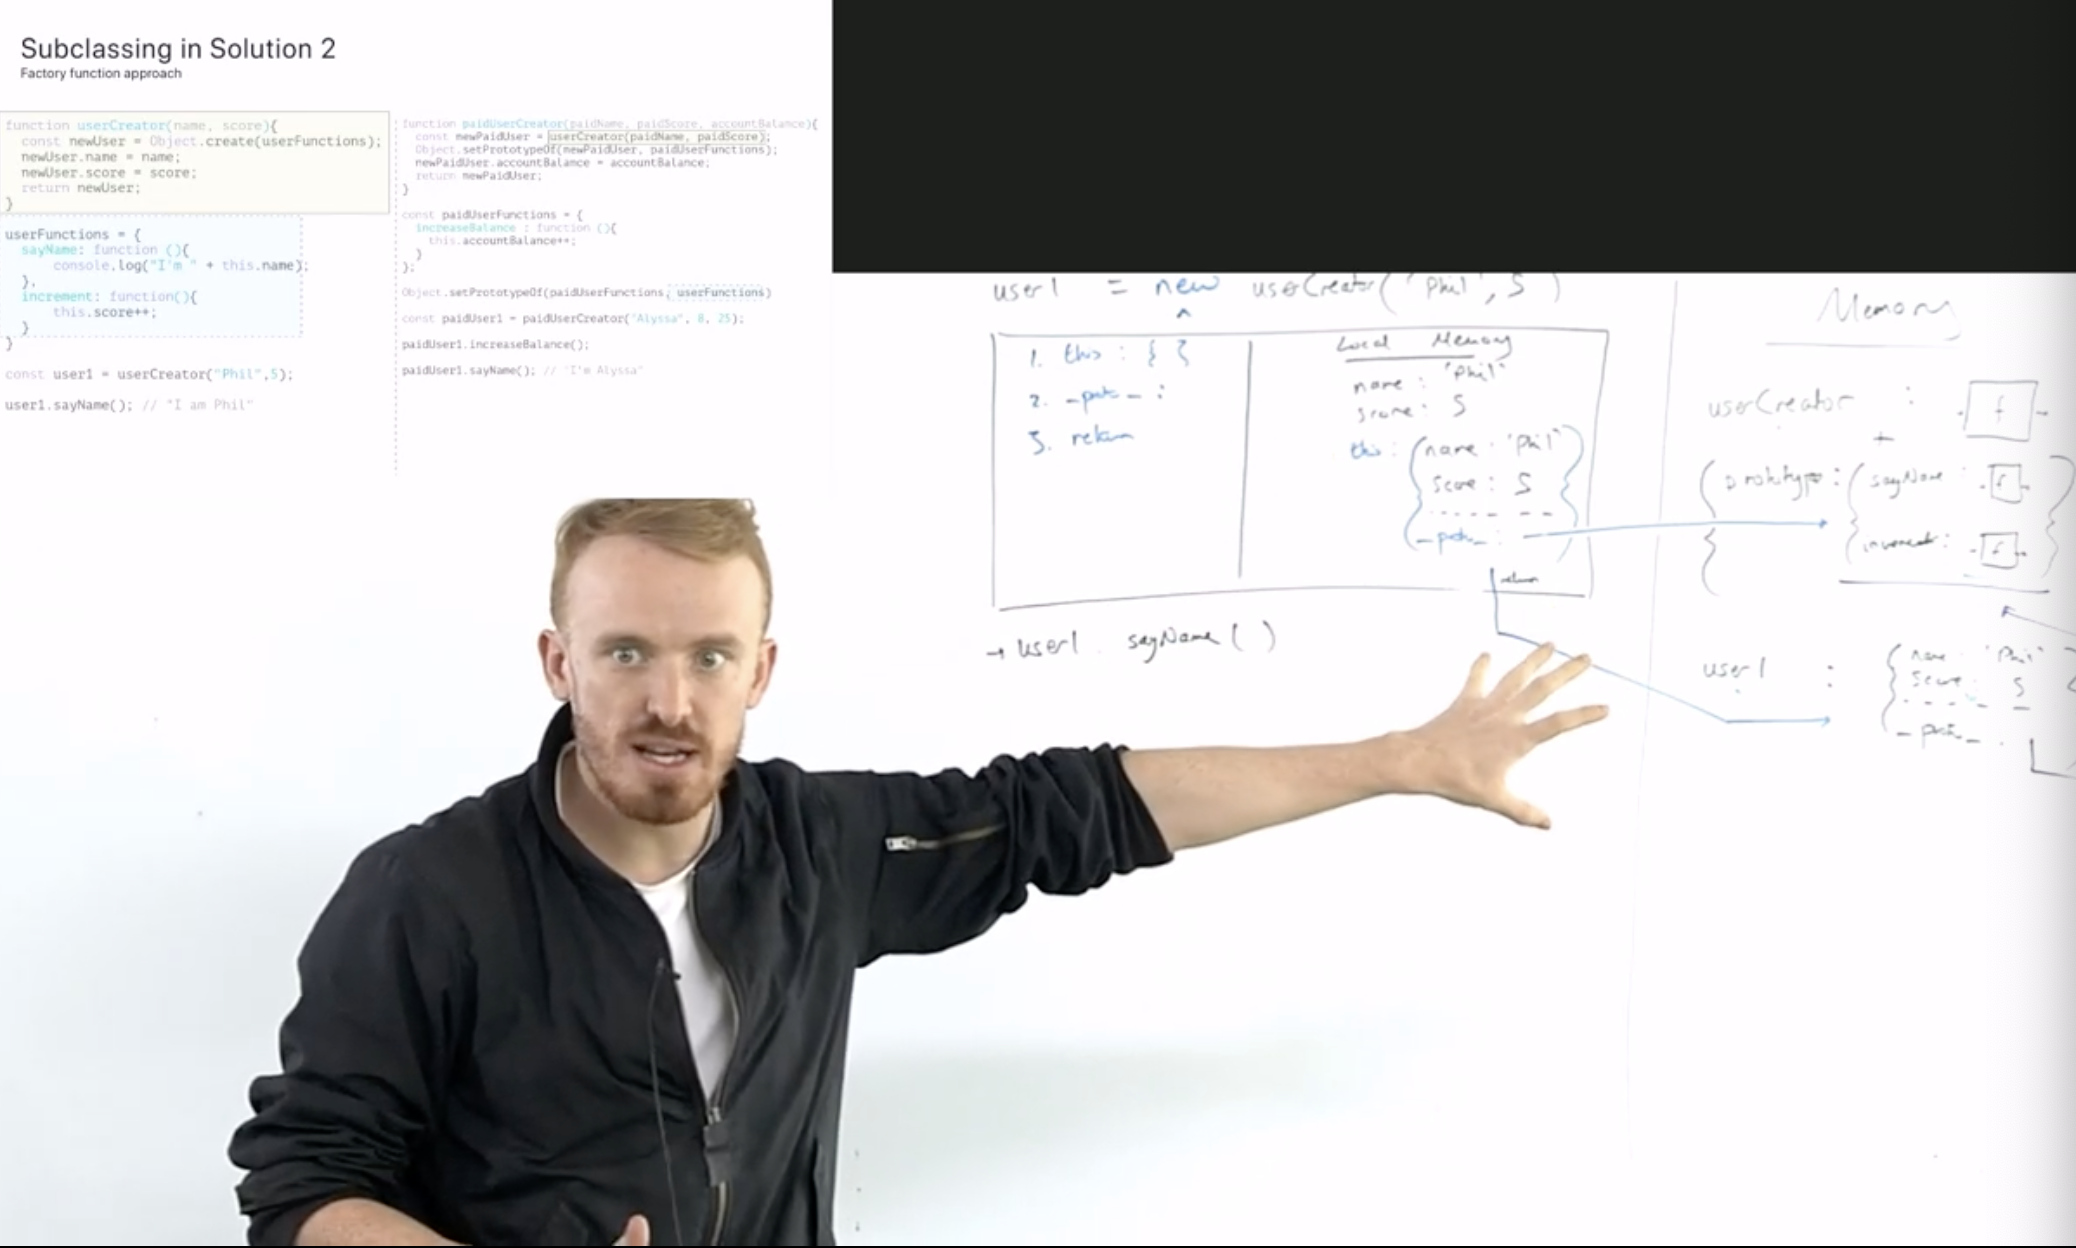 Subclassing in Solution 2
Factory function approach
function userCreator(name, score){
const newUser = Object.create(userFunctions);
newUser.name = name;
newUser.score = score;
return newUser;
}
userFunctions = {
sayName: function (){
console.log("I'm " + this.name);
},
increment: function(){
this.score++;
}
}
const user1 = userCreator("Phil",5);
user1.sayName(); // "I am Phil"
function paidUserCreator(paidName, paidScore, accountBalance){
const newPaidUser = userCreator(paidName, paidScore);
Object.setPrototypeOf(newPaidUser, paidUserFunctions);
newPaidUser.accountBalance = accountBalance;
return newPaidUser;
}
const paidUserFunctions = {
increaseBalance : function (){
this.accountBalance++;
}
};
Object.setPrototypeOf(paidUserFunctions, userFunctions)
const paidUser1 = paidUserCreator("Alyssa", 8, 25);
paidUser1.increaseBalance();
paidUser1.sayName(); // "I'm Alyssa"
user1 = new userCreator('Phil', 5)
^
1. this : { }
2. _proto_ :
3. return
Local Memory
name : 'Phil'
score : 5
this : { name : 'Phil'
score : 5
_proto_ :
return
→ user1 . sayName ( )
Memory
userCreator : f
+
{ prototype : { sayName : f
increment : f }
user1 : { name : 'Phil'
score : 5
_proto_ :